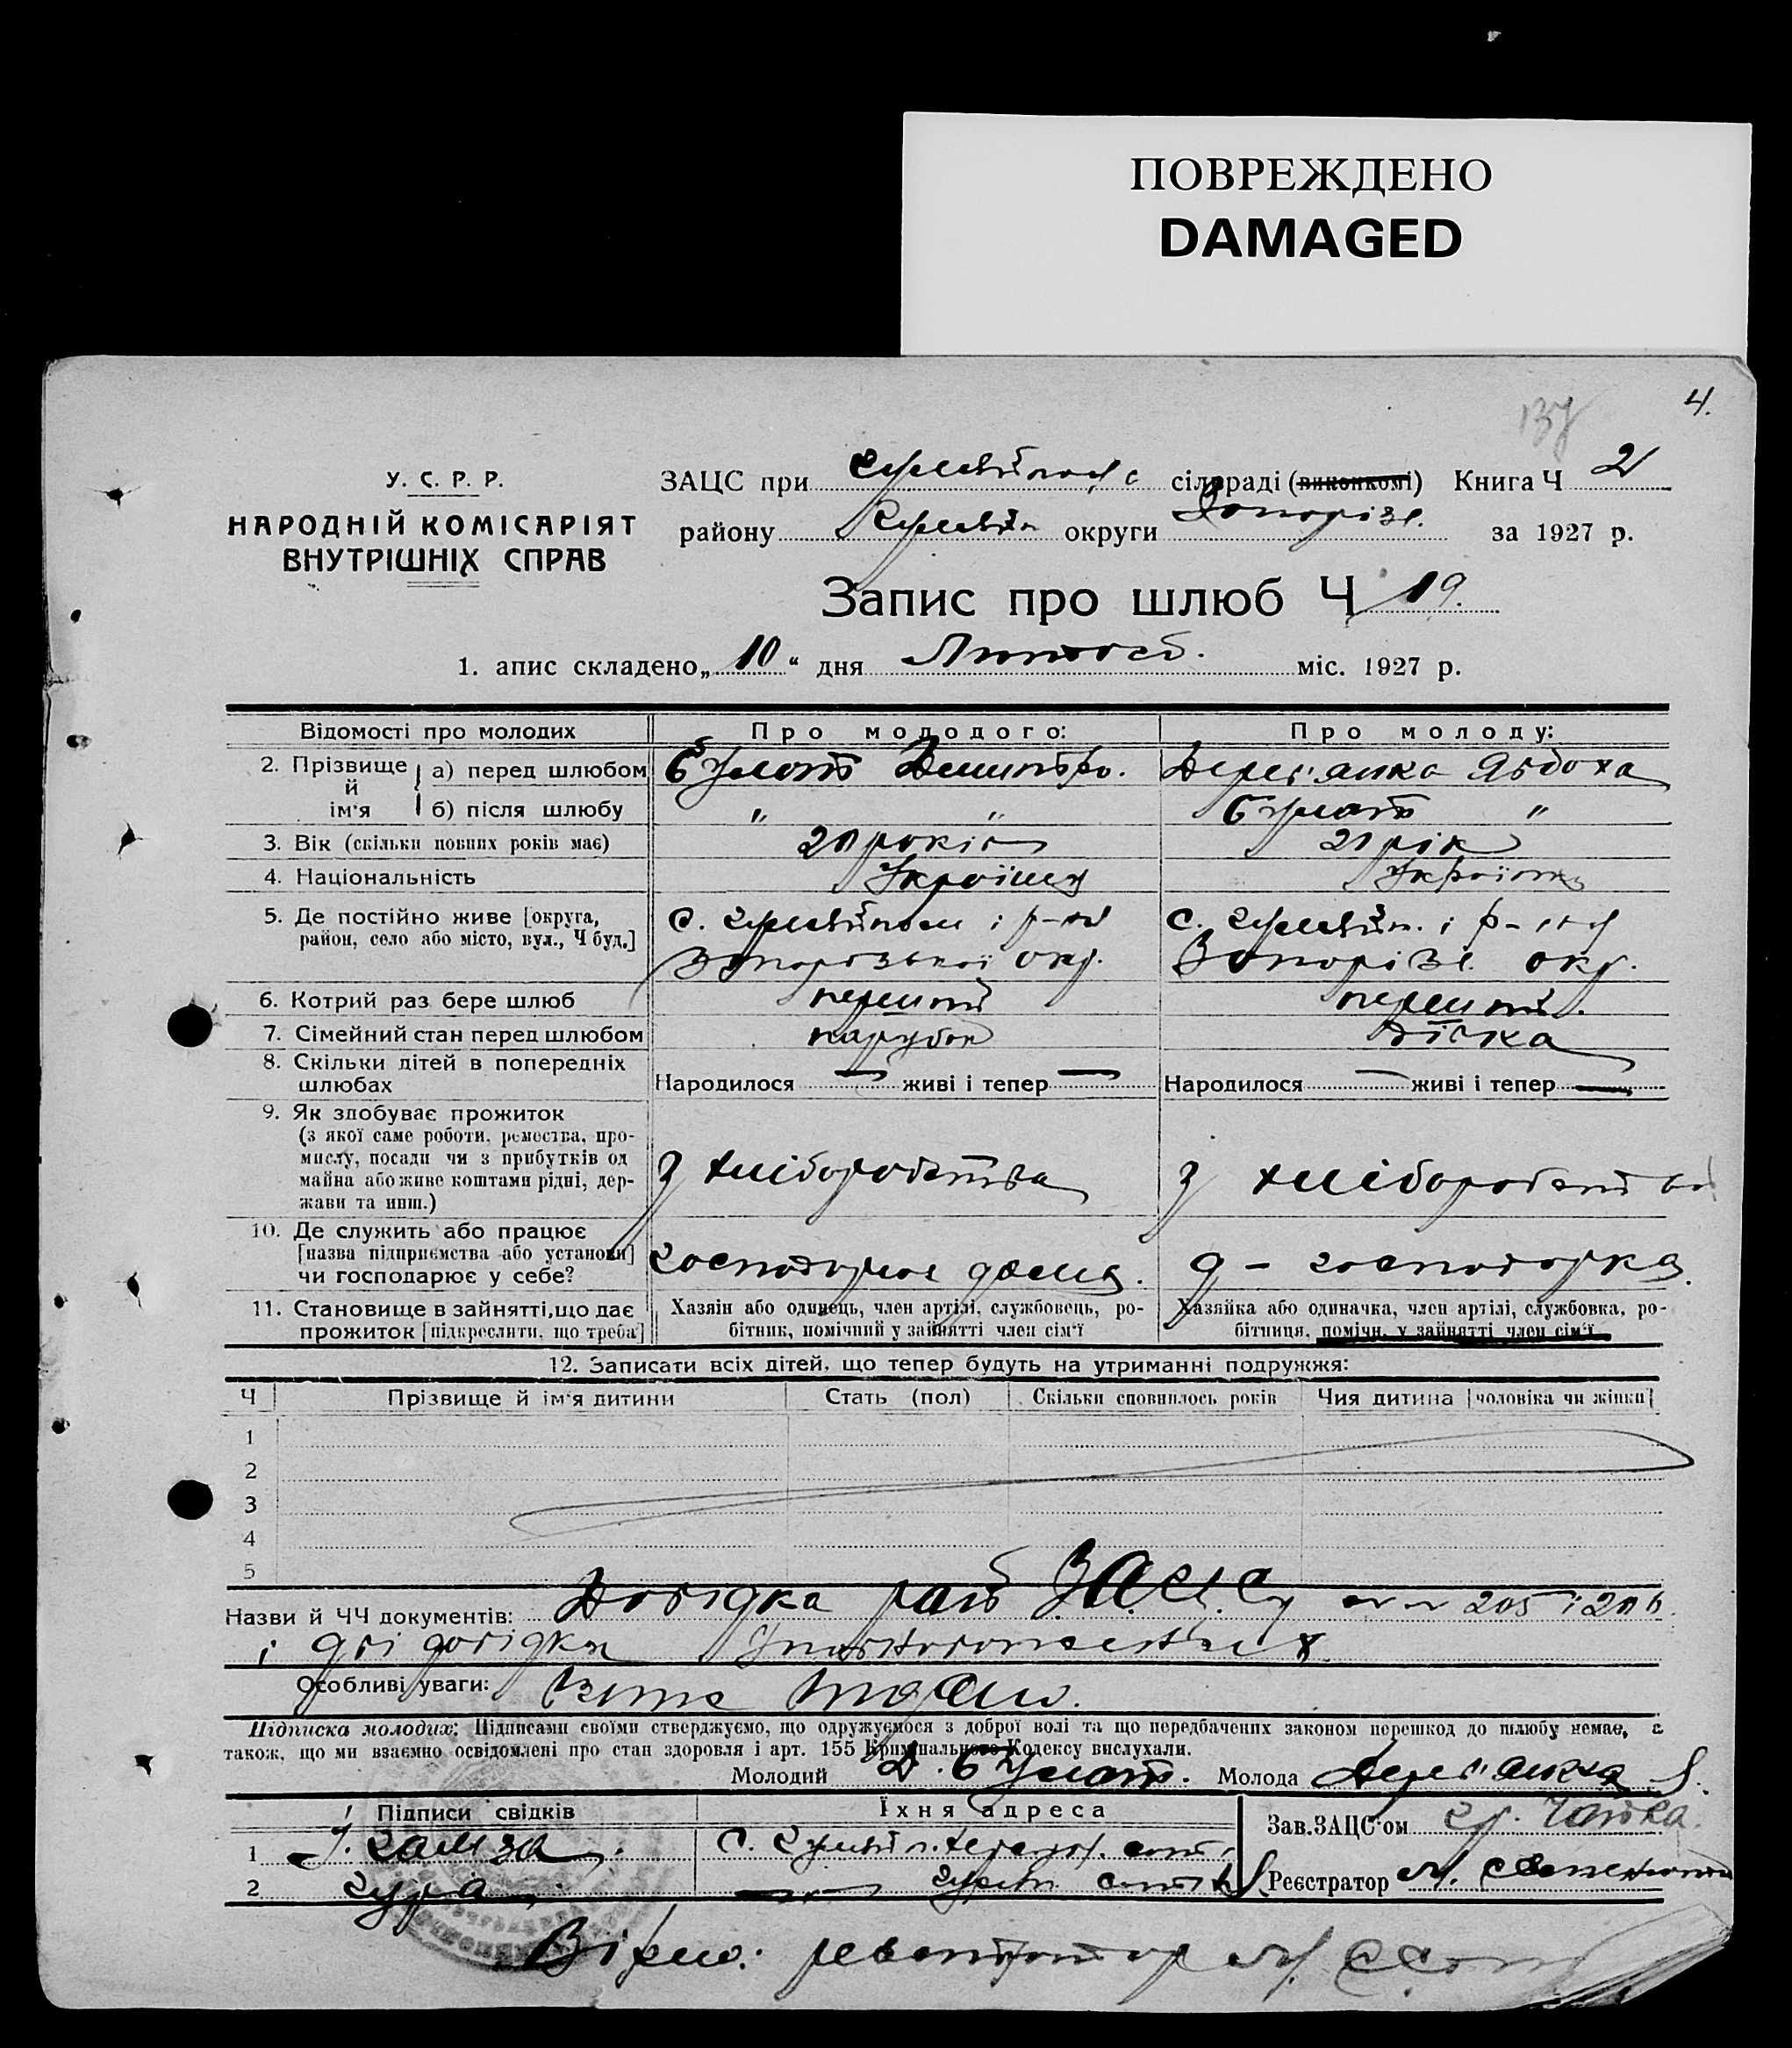 ПОВРЕЖДЕНО
DAMAGED
4.
137
У. С. Р. Р.
НАРОДНІЙ КОМІСАРІЯТ
ВНУТРІШНІХ СПРАВ
ЗАЦС при сільраді (виконкомі) Книга Ч 2
району округи Запорізь. за 1927 р.
Запис про шлюб Ч 19.
1. апис складено „ 10 “ дня Лютого міс. 1927 р.
Відомості про молодих
Про молодого:
Про молоду:
2. Прізвище й ім'я
а) перед шлюбом
Булат Дмитро.
Дерев'янка Явдоха
б) після шлюбу
" "
Булат "
3. Вік (скільки повних років має)
20 років
21 рік
4. Національність
Українец
Українка
5. Де постійно живе [округа,
район, село або місто, вул., Ч буд.]
с. і р-ну
Запорізької окр.
с. і р-ну
Запорізь. окр.
6. Котрий раз бере шлюб
перший
перший.
7. Сімейний стан перед шлюбом
парубок
дівка
8. Скільки дітей в попередніх
шлюбах
Народилося — живі і тепер —
Народилося — живі і тепер —
9. Як здобуває прожиток
(з якої саме роботи, ремества, про-
мислу, посади чи з прибутків од
майна або живе коштами рідні, дер-
жави та инш.)
З хліборобства
З хліборобства
10. Де служить або працює
[назва підприємства або установи]
чи господарює у себе?
господарює дома.
д - господарка
11. Становище в зайнятті, що дає
прожиток [підкреслити, що треба]
Хазяін або одинець, член артілі, службовець, ро-
бітник, помічний у зайнятті член сім'ї
Хазяйка або одиначка, член артілі, службовка, ро-
бітниця, помічн. у зайнятті член сім'ї
12. Записати всіх дітей, що тепер будуть на утриманні подружжя:
Ч
Прізвище й ім'я дитини
Стать (пол)
Скільки сповнилось років
Чия дитина [чоловіка чи жінки]
1
2
3
4
5
Назви й ЧЧ документів: Довідка рай ЗАЦСу 205 і 206
і дві довідки
Особливі уваги:
Підписка молодих: Підписами своїми стверджуємо, що одружуємося з доброї волі та що передбачених законом перешкод до шлюбу немає, а
також, що ми взаємно освідомлені про стан здоровля і арт. 155 Криминального Кодексу вислухали.
Молодий Д. Булат. Молода Дерев'янка Я.
Підписи свідків
Їхня адреса
1 Гамза
2 Гура
Зав.ЗАЦС'ом Гр. Чайка.
Реєстратор М.
Вірно: реєстратор М.